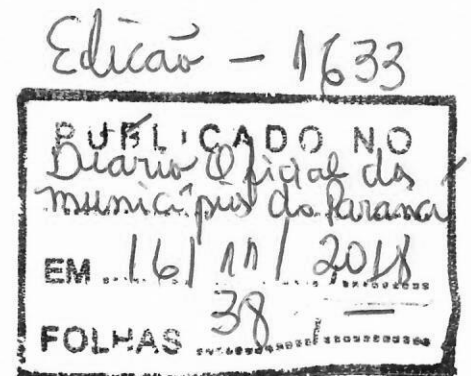 Edicaõ - 1633
PUBLICADO NO
Diario Oficial dos
municípios do Parana
EM 16/11/2018
FOLHAS 38 / —